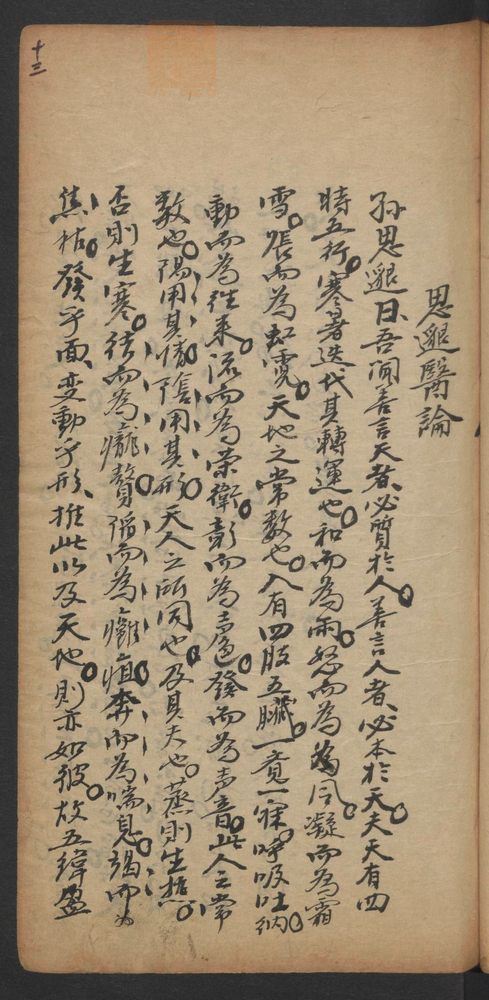 十三
思邈醫論
孙思邈曰吾闻善言天者必質於人善言人者必本於天夫天有四
時五行寒暑迭代其轉運也和而為雨怒而為風凝而為霜
雪張而為虹霓天地之常數也人有四肢五臟一覺一寐呼吸吐納
動而為往来流而為荣衛彰而為氣色發而為声音此人之常
數也陽用其隂用其形天人之所同也及其失也蒸則生热
否則生寒结而為瘤贅陷而為癰疽奔而為喘息竭而為
焦枯發乎面变動乎形推此以及天地則亦如彼故五緯盈